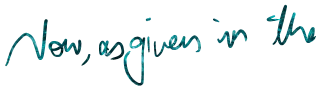 Now, as given in the